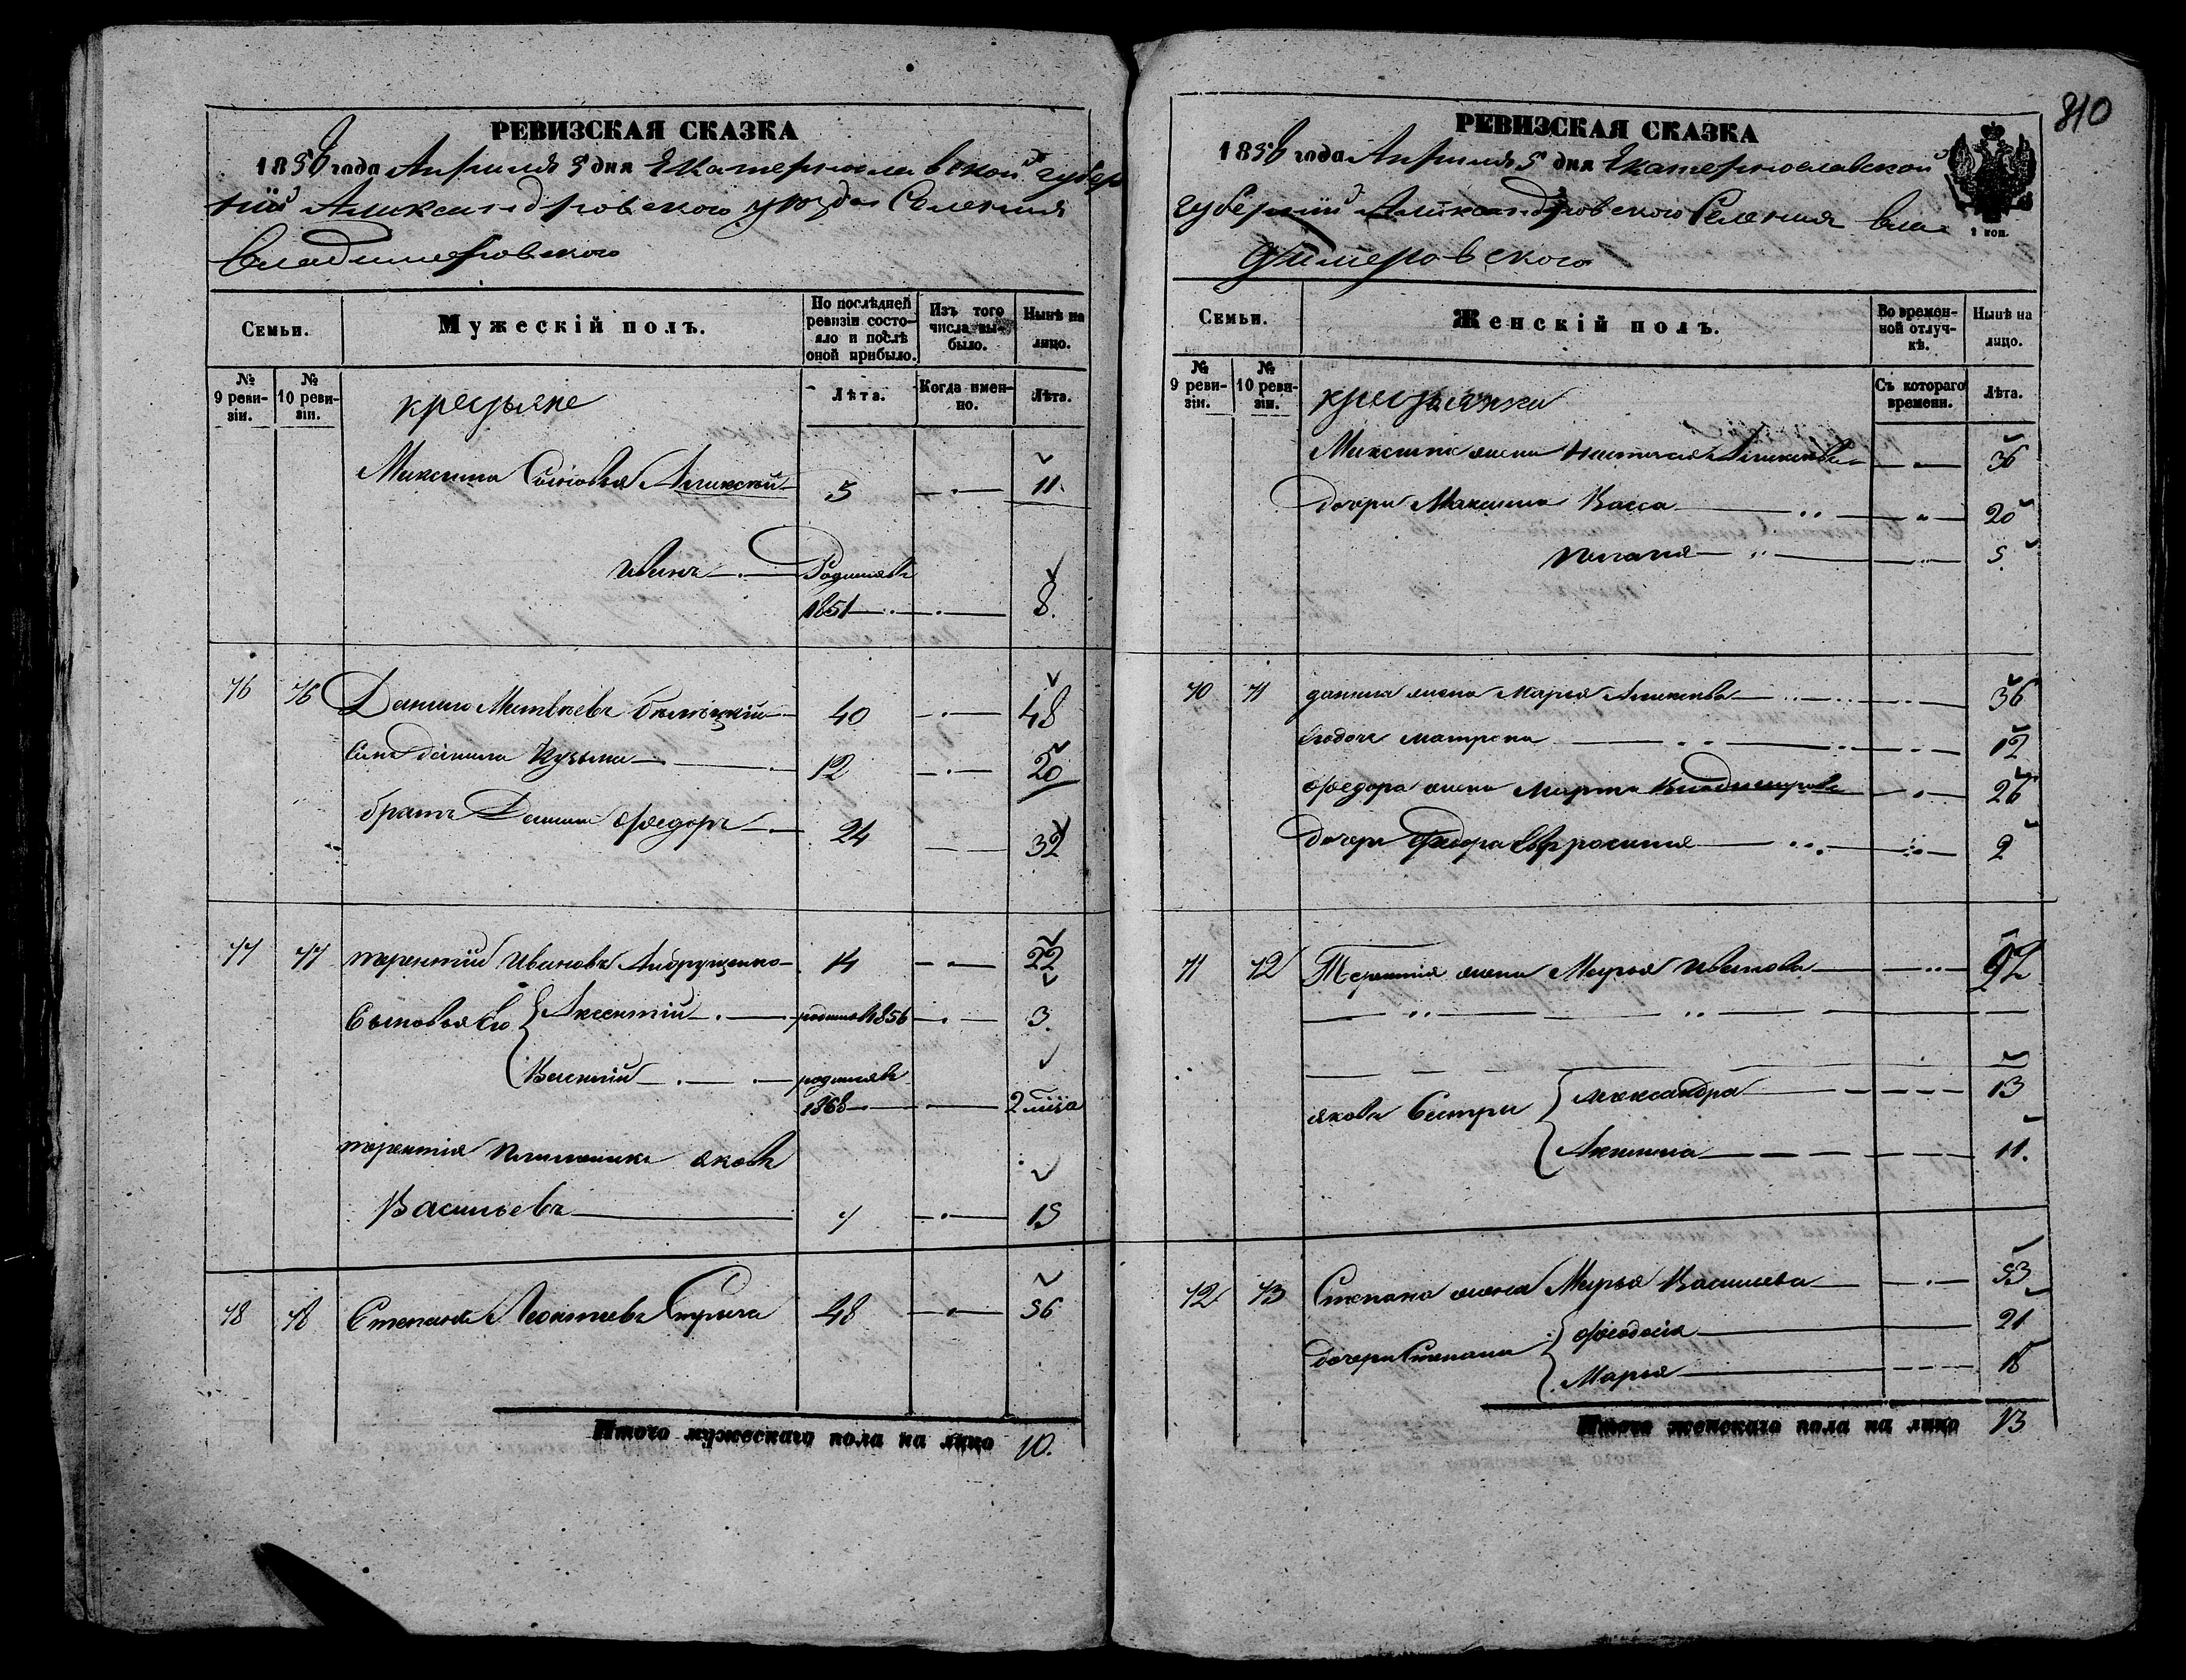 РЕВИЗСКАЯ СКАЗКА
1858 года Апрѣля 5 дня Екатеринославской губер
ніи Александровского уѣзда Селенія
Владимеровского
Семьи.
Мужескій полъ.
По послѣдней ревизіи состояло и послѣ оной прибыло.
Изъ того числа выбыло.
Нынѣ на лицо.
№ 9 ревизіи.
№ 10 ревизіи.
крестьяне
Лѣта.
Когда именно.
Лѣта.
Максима Сыновья Алексѣй 5 11.
Иванъ Родился
1851 8.
76 76 Данило Матвѣевъ 40 48
Сынъ данила Кузьма 12 20
братъ Данила Ѳеодоръ 24 32
77 77 терентій Ивановъ Андрущенко 14 22
Сыновья Его Аксентій родился 1856 3.
Василій родился
1858 2 мѣца
терентія племянникъ яковъ
Васильевъ 7 15
78 78 Степанъ Леонтьевъ 48 56
Итого мужескаго пола на лицо 10.
810
РЕВИЗСКАЯ СКАЗКА
1858 года Апрѣля 5 дня Екатеринославской
губерніи Александровского Селенія Вла
димеровского
1 коп.
Семьи.
Женскій полъ.
Во временной отлучкѣ.
Нынѣ на лицо.
№ 9 ревизіи.
№ 10 ревизіи.
крестьянки
Съ котораго времени.
Лѣта.
Максима жена Настасья 36
дочери Максима Васса 20
Пелагія 5
70 71 данила жена Марья 36
Матрена 12
Ѳеодора жена Марта Владимерова 26
дочери Ѳеодора Евфросинія 2
71 72 Терентія жена Марья Иванова
якова Сестры Александра 13
Акилина 11.
72 73 Степана жена Марья Васильева 53
дочери Степана Ѳеодосія 21
Марья 18
Итого женскаго пола на лицо 13